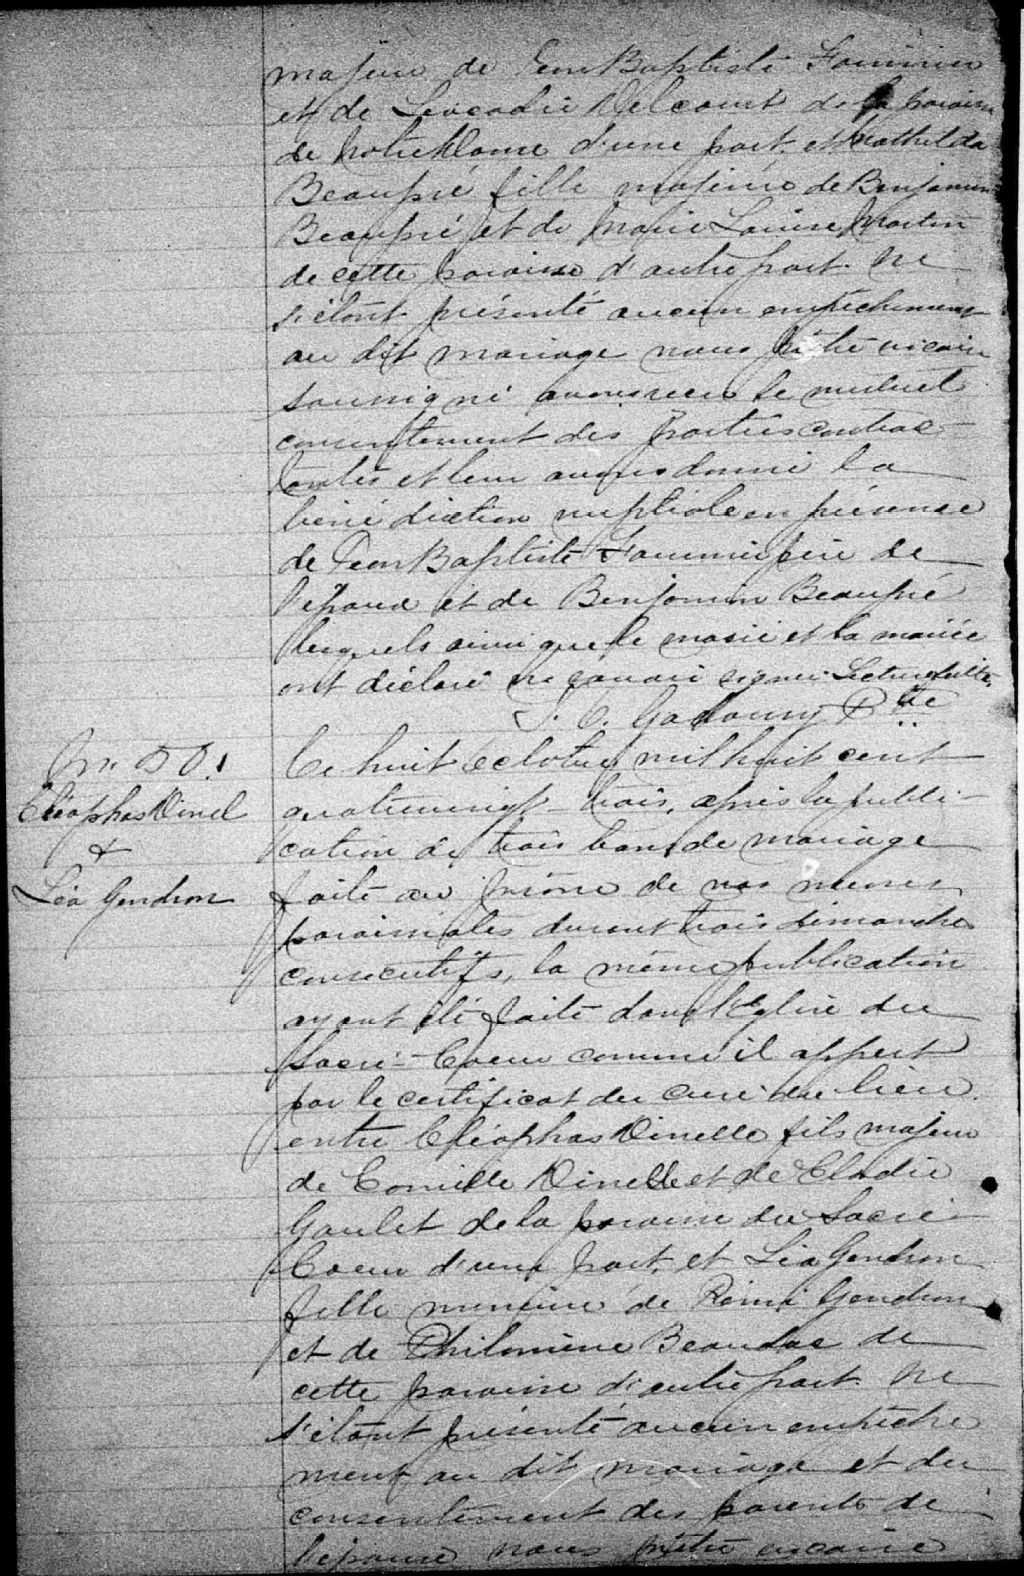 majeur de Jean Baptiste Fournier
et de Léocadie Delcourt de la paroisse
de Notre Dame d'une part, et Mathilda
Beaupré fille majeure de Benjamin
Beaupré et de Marie Louise Martin
de cette paroisse d'autre part. Ne
s'étant présenté aucun empêchement
au dit mariage nous prêtre vicaire
soussigné avons reçu le mutuel
consentement des parties contrac-
tantes et leur avons donné la
bénédiction nuptiale en présence
de Jean Baptiste Fournier père de
l'époux et de Benjamin Beaupré
lesquels ainsi que le marié et la mariée
ont déclaré ne savoir signer. Lecture faite.
J. C. Gadoury Ptre
M. 50.
Cléophas Dinel
&
Léa Gendron
Ce huit Octobre mil huit cent
quatrevingt trois, après la publi-
cation de trois bans de mariage
faite au prône de nos messes
paroissiales durant trois dimanches
consécutifs, la même publication
ayant été faite dans l'Eglise du
Sacré-Coeur comme il appert
par le certificat du curé du lieu.
entre Cléophas Dinelle fils majeur
de Camille Dinelle et de Elodie
Goulet de la paroisse du Sacré-
Coeur d'une part, et Léa Gendron
fille mineure de Rémi Gendron
et de Philomène Beaudoc de
cette paroisse d'autre part. Ne
s'étant présenté aucun empêche
ment au dit mariage et du
consentement des parents de
l'épouse nous prêtre vicaire